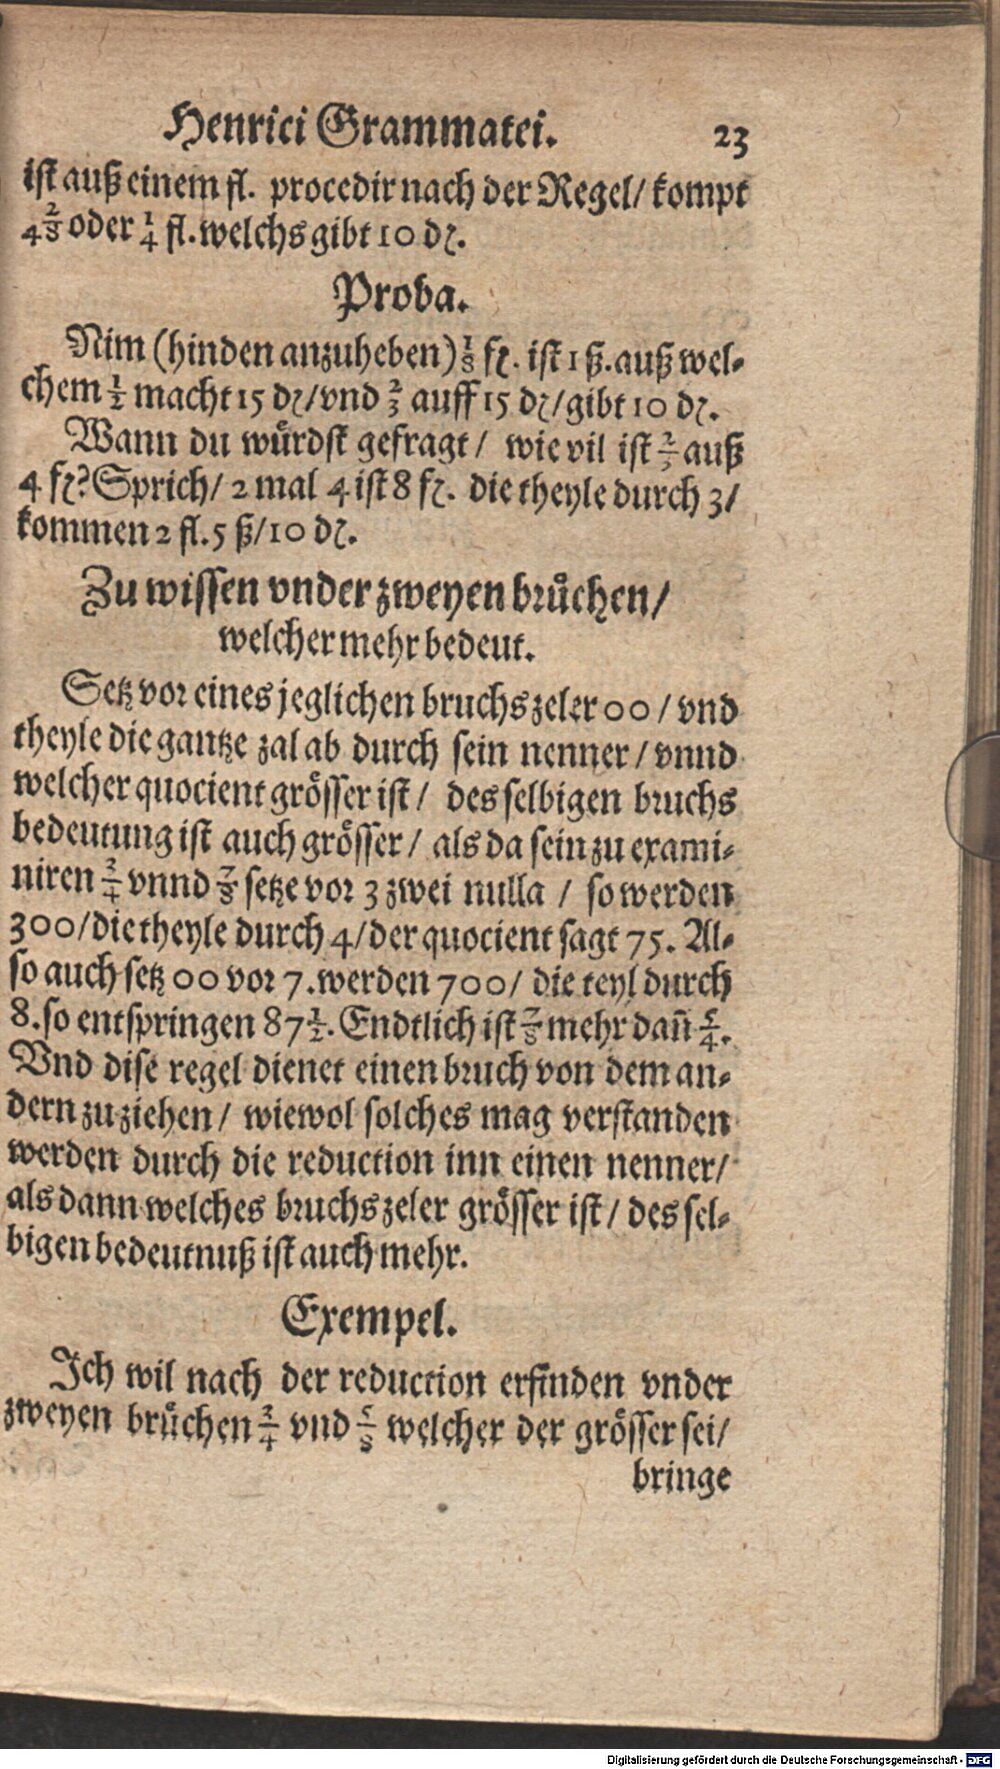 Henrici Grammatei. 23
ist auß einem fl. procedir nach der Regel/ kompt
oder 1/4 fl. welchs gibt 10 dʒ.
Proba.
Nim (hinden anzuheben) 1/8 fʒ. ist 1 ß. auß wel⸗
chem 1/2 macht 15 dʒ/ vnd 2/3 auff 15 dʒ/ gibt 10 dʒ.
Wann du wuͤrdst gefragt/ wie vil ist 2/3 auß
4 fʒ? Sprich/ 2 mal 4 ist 8 fʒ. die theyle durch 3/
kommen 2 fl. 5 ß/ 10 dʒ.
Zu wissen vnder zweyen bruͤchen/
welcher mehr bedeut.
Setz vor eines jeglichen bruchs zeler 00/ vnd
theyle die gantze zal ab durch sein nenner/ vnnd
welcher quocient groͤsser ist/ des selbigen bruchs
bedeutung ist auch groͤsser/ als da sein zu exami⸗
niren 3/4 vnnd 7/8 setze vor 3 zwei nulla / so werden
300/ die theyle durch 4/ der quocient sagt 75. Al⸗
so auch setz 00 vor 7. werden 700/ die teyl durch
8. so entspringen 87 1/2. Endtlich ist 7/8 mehr dañ
Vnd dise regel dienet einen bruch von dem an⸗
dern zu ziehen/ wiewol solches mag verstanden
werden durch die reduction inn einen nenner/
als dann welches bruchs zeler groͤsser ist/ des sel⸗
bigen bedeutnuß ist auch mehr.
Exempel.
Ich wil nach der reduction erfinden vnder
zweyen bruͤchen 3/4 vnd 5/8 welcher der groͤsser sei/
bringe
Digitalisierung gefördert durch die Deutsche Forschungsgemeinschaft - DFG